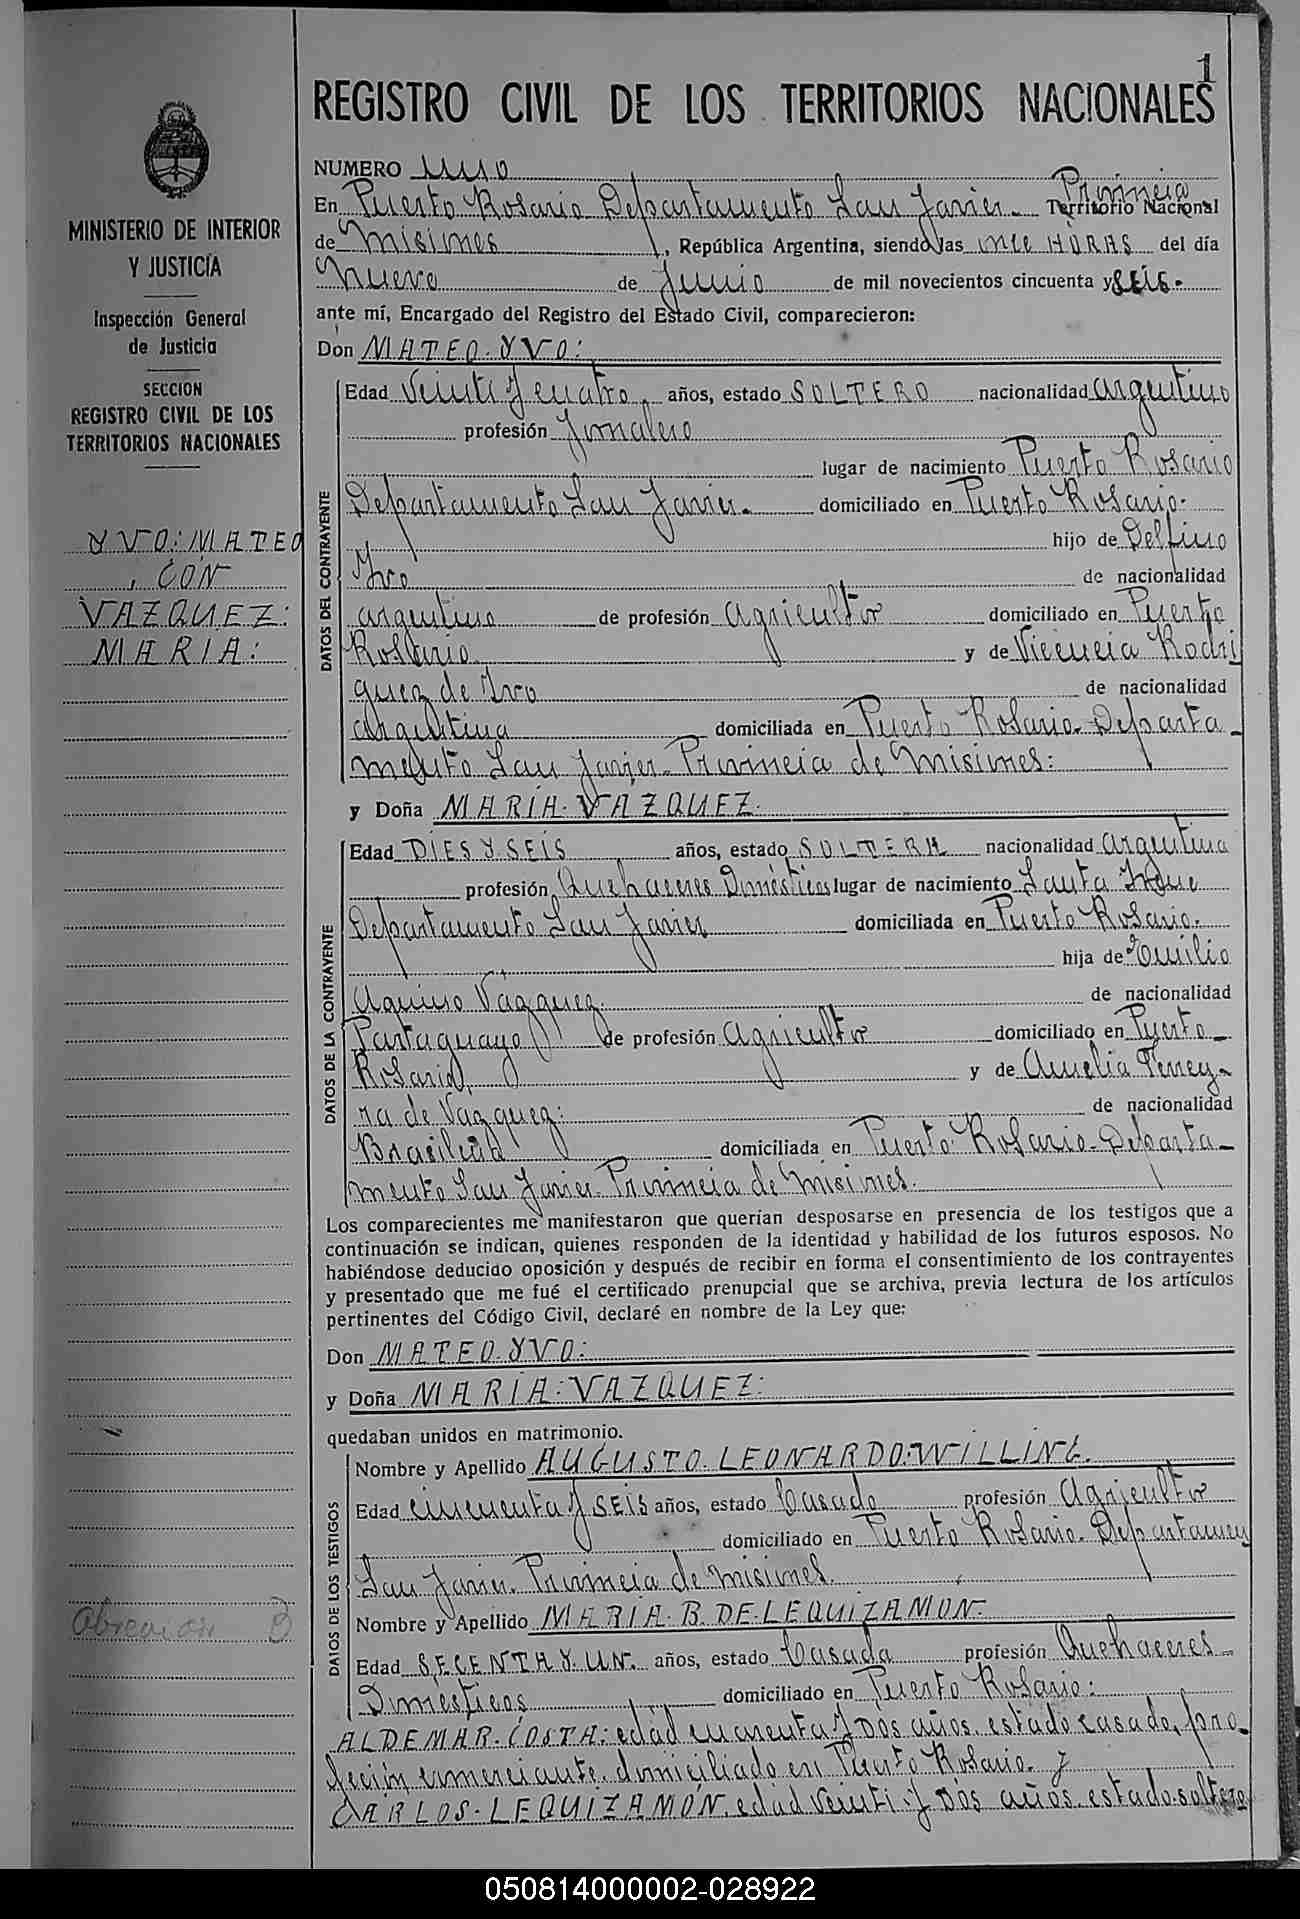 1
REGISTRO CIVIL DE LOS TERRITORIOS NACIONALES
MINISTERIO DE INTERIOR
Y JUSTICIA
Inspección General
de Justicia
SECCION
REGISTRO CIVIL DE LOS
TERRITORIOS NACIONALES
YVO: MATEO
CON
VAZQUEZ:
MARIA:
NUMERO Uno
Provincia
En Puerto Rosario Departamento San Javier. Territorio Nacional
de Misiones, República Argentina, siendo las once HORAS del día
Nueve de Junio de mil novecientos cincuenta y SEIS.
ante mí, Encargado del Registro del Estado Civil, comparecieron:
Don MATEO. YVO:
DATOS DEL CONTRAYENTE
Edad Veinti y cuatro. años, estado SOLTERO nacionalidad argentino
profesión Jornalero
lugar de nacimiento Puerto Rosario
Departamento San Javier. domiciliado en Puerto Rosario.
hijo de Delfino
Ivo de nacionalidad
argentino de profesión agricultor domiciliado en Puerto
Rosario y de Vicencia Rodri
guez de Ivo de nacionalidad
argentina domiciliada en Puerto Rosario. Departa
mento San Javier. Provincia de Misiones:
y Doña MARIA. VAZQUEZ.
DATOS DE LA CONTRAYENTE
Edad DIES Y SEIS años, estado SOLTERA nacionalidad argentina
profesión Quehaceres Domésticos lugar de nacimiento Santa Irene
Departamento San Javier domiciliada en Puerto Rosario.
hija de Emilio
Aquino Vázquez. de nacionalidad
Paraguayo de profesión agricultor domiciliado en Puerto
Rosario, y de Amelia
ra de Vazquez: de nacionalidad
Brasileña domiciliada en Puerto Rosario. Departa
mento San Javier. Provincia de Misiones.
Los comparecientes me manifestaron que querían desposarse en presencia de los testigos que a
continuación se indican, quienes responden de la identidad y habilidad de los futuros esposos. No
habiéndose deducido oposición y después de recibir en forma el consentimiento de los contrayentes
y presentado que me fué el certificado prenupcial que se archiva, previa lectura de los artículos
pertinentes del Código Civil, declaré en nombre de la Ley que:
Don MATEO. YVO:
y Doña MARIA: VAZQUEZ:
quedaban unidos en matrimonio.
DATOS DE LOS TESTIGOS
Nombre y Apellido AUGUSTO. LEONARDO: WILLING.
Edad cincuenta y SEIS años, estado Casado profesión Agricultor
domiciliado en Puerto Rosario. Departamen
San Javier. Provincia de Misiones.
Nombre y Apellido MARIA. B. DE. LEQUIZAMON.
Edad SECENTA Y. UN. años, estado Casada profesión Quehaceres
Domésticos domiciliado en Puerto Rosario:
ALDEMAR. COSTA: edad cuarenta y Dos años. estado casado, pro
feción comerciante. domiciliado en Puerto Rosario. y
CARLOS. LEQUIZAMÓN. edad veinti y Dos años. estado. soltero
050814000002-028922